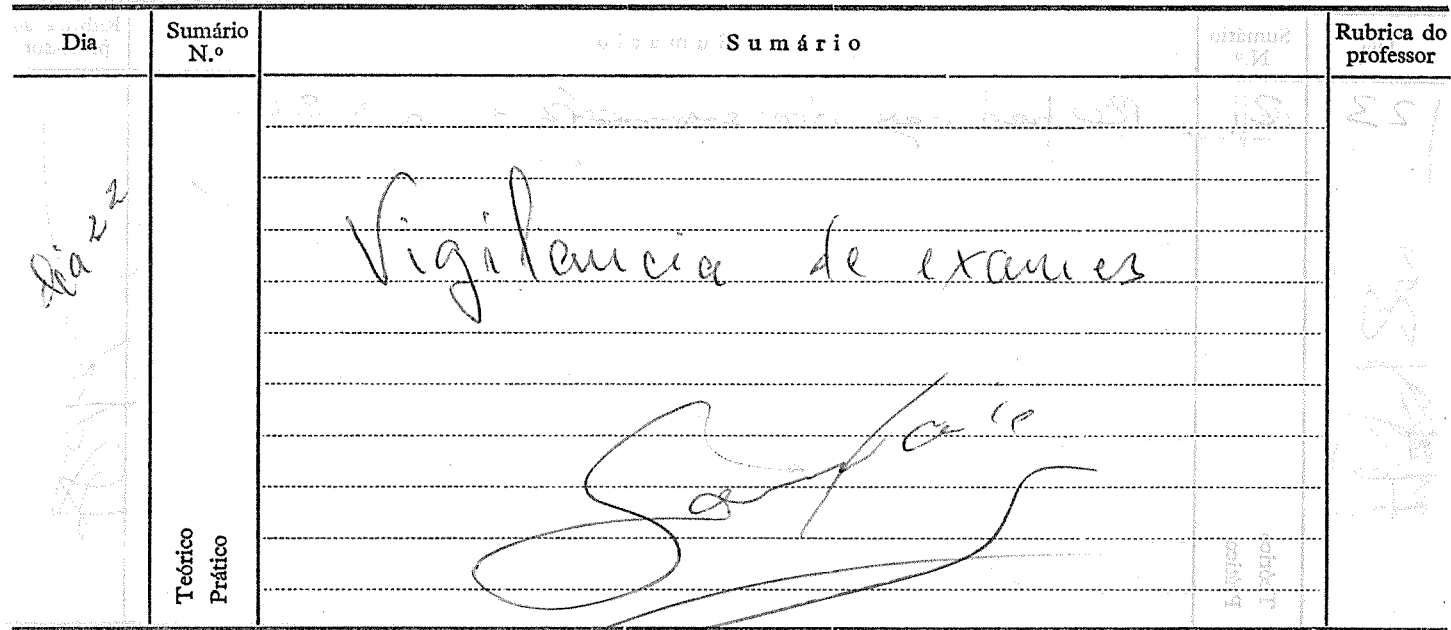 Dia
Sumário N.º
Sumário
Rubrica do professor
Dia 22
Vigilancia de exames
Teórico
Prático